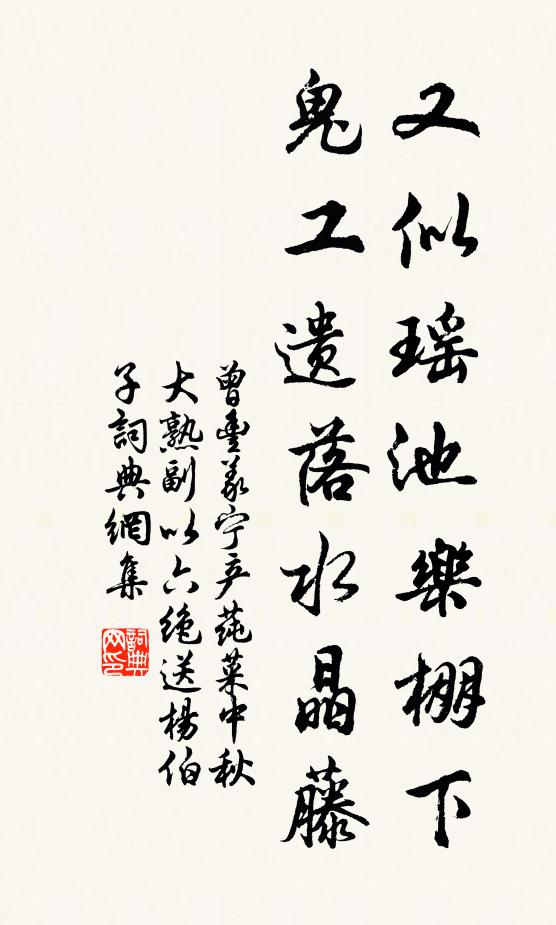 又似瑶池樂棚下
鬼工遗落水晶藤
曾豐義宁产莼菜中秋
大熟副以六绝送楊伯
子詞典網集
詞典网印